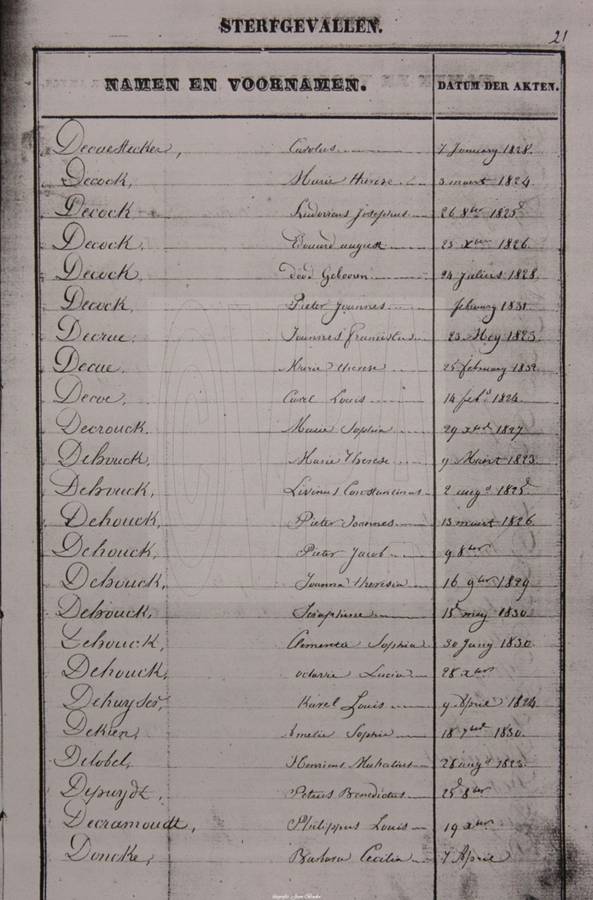 STERFGEVALLEN.
21
NAMEN EN VOORNAMEN. DATUM DER AKTEN.
Carolus 7 January 1828.
Decock, Marie Therese 3 maert 1824.
Decock Ludovicus Josephus 26 8ber 1825
Decock, Edouard august 23 xber 1826.
Decock, dood Geboren 24 Julius 1828.
Decock, Pieter Joannes february 1831
Joannes Franciscus 23 Mey 1823.
Decue, Marie Therese 25 february 1832
Decoe, Carel Louis 14 feb 1824.
Decrouck. Marie Sophia 29 1827
Dehouck, Marie Therese 9 Maert 1823.
Dehouck, Livinus Constantinus 2 augs 1825
Dehouck, Pieter Joannes 13 maert 1826.
Dehouck, Pieter Jacob 9 8ber
Dehouck, Joanna Theresia 16 9ber 1829
Dehouck, Seraphine 15 mey 1830.
Dehouck, Sophia 30 Juny 1830.
Dehouck, octavie Lucia 28 xber
Karel Louis 9 April 1824
Dekien, Amelie Sophie 18 1830.
Delobel, Henricus 28 augs 1823.
Depuydt, Petrus Benedictus 25 8ber
Decramoudt, Philippus Louis 19 xber
Doncke, Barbara Cecilia 7 April